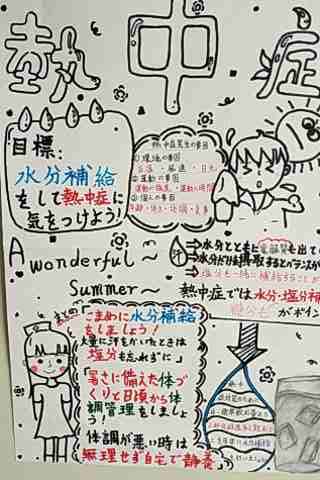 熱中症
目標:
水分補給
をして熱中症に
気をつけよう!
熱中症発生の要因
①環境の要因
気温・湿度・日光
②運動の要因
運動の強度・運動の時間
③個人の要因
A wonderful~
Summer~
汗
⇒水分とともに電解質も出て
⇒水分だけを摂取するとバランスが
⇒塩分も一緒に補給すること
熱中症では水分・塩分補
給がポイン
まとめ
こまめに水分補給
をしましょう!
大量に汗をかいたときは
塩分も忘れずに
暑さに備えた体づ
くりと日頃から体
調管理をしましょ
う!
体調が悪い時は
無理せず自宅で静養